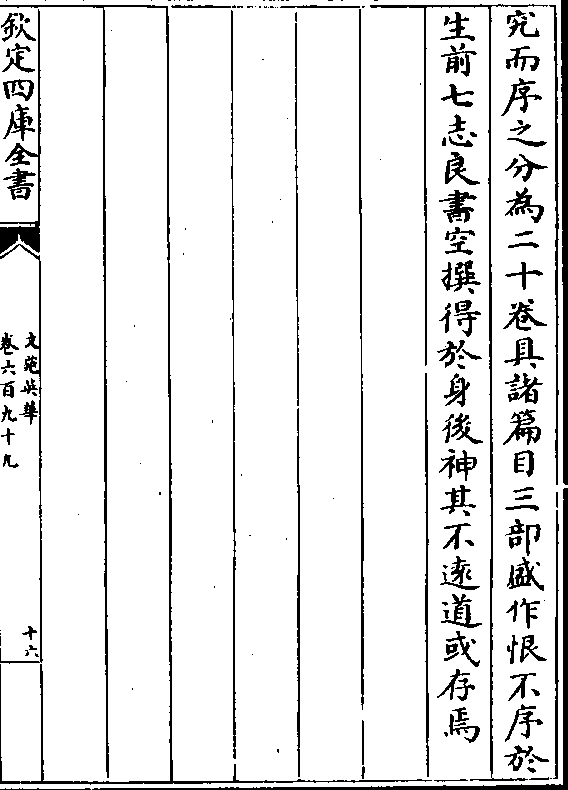 究而序之分為二十卷具諸篇目三部盛作恨不序於
生前七志良書空撰得於身後神其不逺道或存焉
欽定四庫全書
文苑英華
卷六百九十九
十六